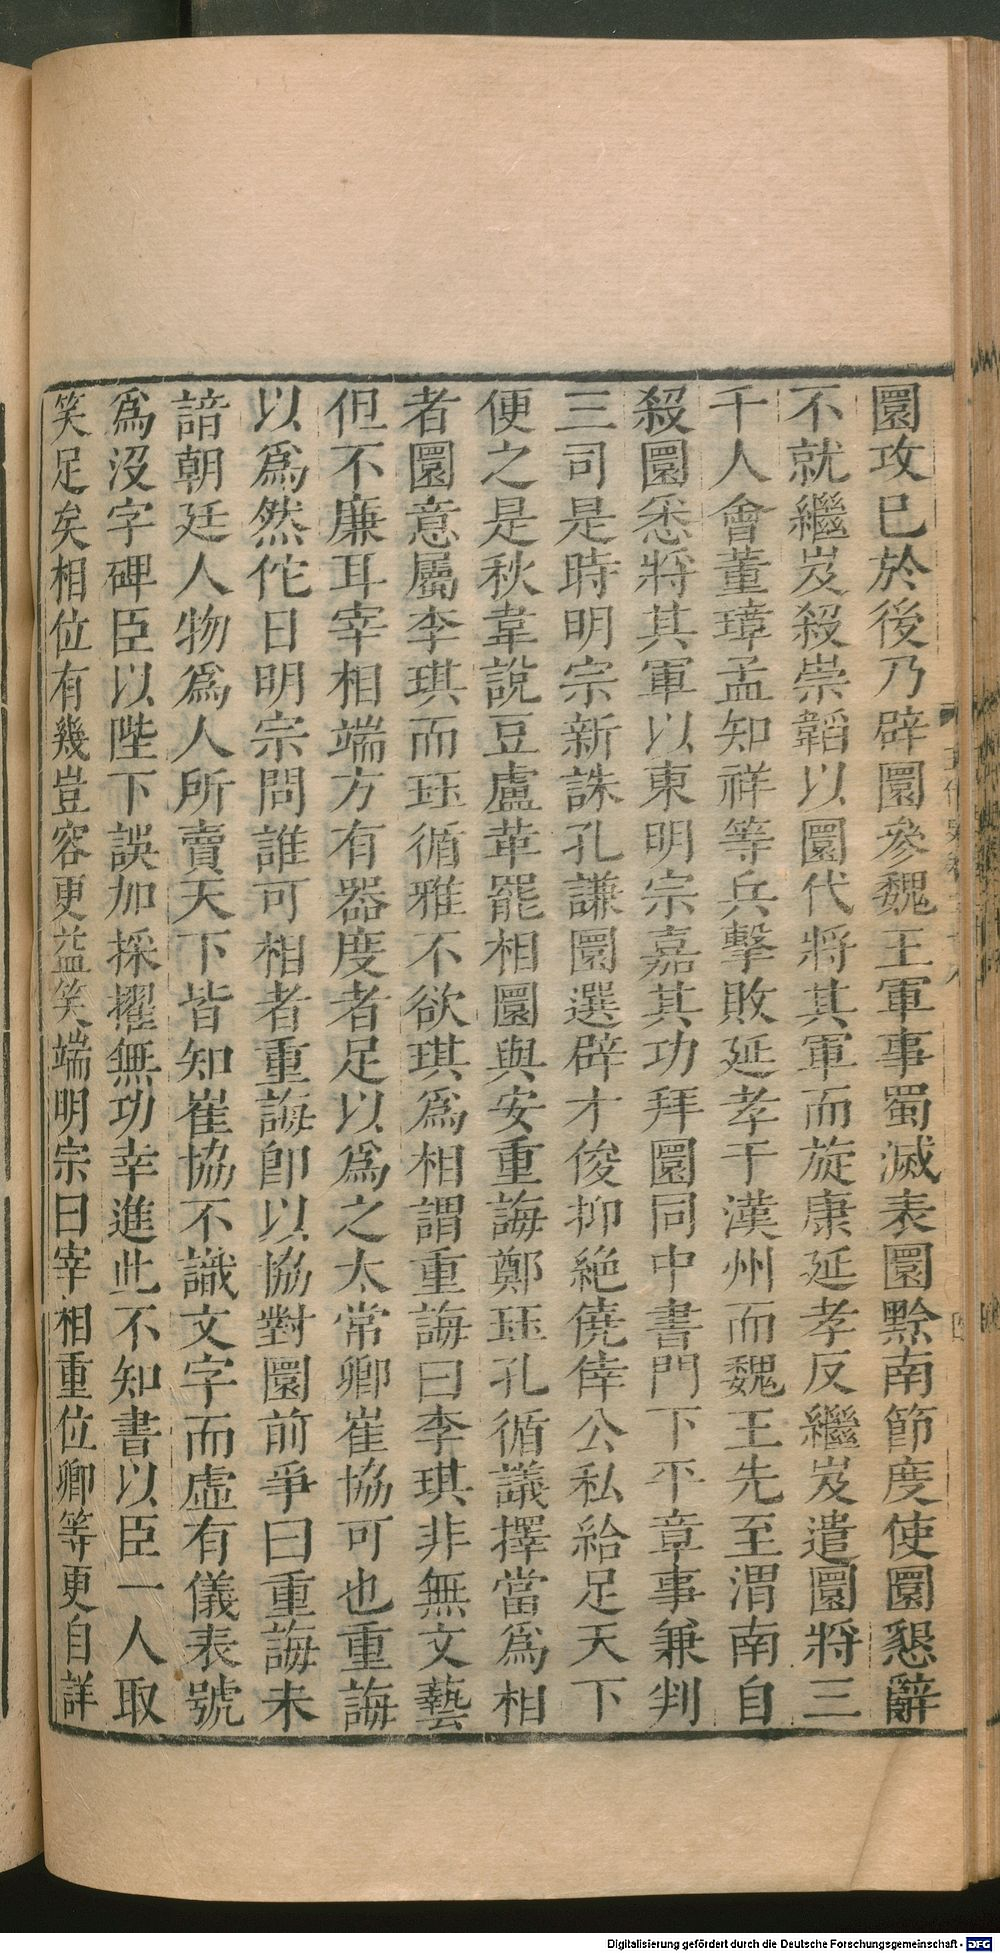 圜攻已於後乃辟圜參魏王軍事蜀滅表圜黔南節度使圜懇辭
不就繼岌殺崇韜以圜代將其軍而旋康延孝反繼岌遣圜將三
千人會董璋孟知祥等兵擊敗延孝于漢州而魏王先至渭南自
殺圜悉將其軍以東明宗嘉其功拜圜同中書門下平章事兼判
三司是時明宗新誅孔謙圜選辟才俊抑絶僥倖公私給足天下
便之是秋韋說豆盧革罷相圜與安重誨鄭珏孔循議擇當爲相
者圜意屬李琪而珏循雅不欲琪爲相謂重誨曰李琪非無文藝
但不廉耳宰相端方有器度者足以爲之太常卿崔協可也重誨
以爲然佗日明宗問誰可相者重誨卽以協對圜前爭曰重誨未
諳朝廷人物爲人所賣天下皆知崔協不識文字而虛有儀表號
爲沒字碑臣以陛下誤加採擢無功幸進此不知書以臣一人取
笑足矣相位有幾豈容更益笑端明宗曰宰相重位卿等更自詳
四
Digitalisierung gefördert durch die Deutsche Forschungsgemeinschaft - DFG